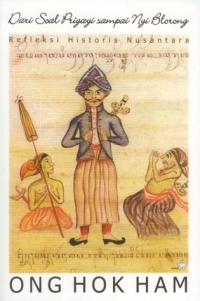 Dari Soal Priyayi sampai Nyi Blorong
Refleksi Historis Nusantara
ONG HOK HAM